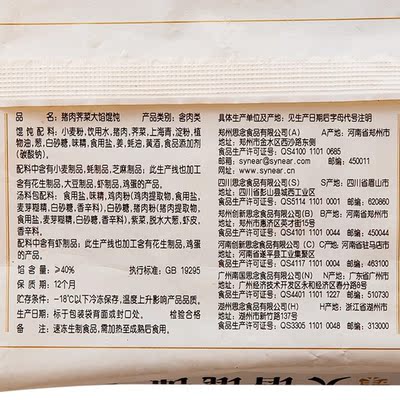 品　名：猪肉荠菜大馅馄饨　产品类别：含肉类
馄饨配料：小麦粉，饮用水，猪肉，荠菜，上海青，淀粉，植
物油，葱，白砂糖，味精，食用盐，姜，蚝油，黄酒，食品添加剂
(碳酸钠)。
配料中含有小麦制品，蚝制品，芝麻制品；此生产线也加工
含有花生制品，大豆制品，虾制品，鸡蛋的产品。
汤料包配料：食用盐，味精，鸡肉粉(鸡肉提取物，食用盐，
麦芽糊精，白砂糖，香辛料)，白砂糖，猪肉粉(猪肉提取物，
食用盐，麦芽糊精，白砂糖，香辛料)，紫菜，脱水大葱，虾皮，
香辛料。
配料中含有虾制品；此生产线也加工含有花生制品，鸡蛋
的产品。
馅含量：≥40%　执行标准：GB 19295
保质期：12个月
贮存条件：-18℃以下冷冻保存，温度上升影响产品品质。
生产日期：标于包装袋背面或封口处。　检验合格
备　注：速冻生制食品，需加热至成熟后食用。
具体生产单位及产地：见生产日期后字母代号注明
郑州思念食品有限公司(A)　A产地：河南省郑州市
地址：郑州市金水区西沙路东侧
食品生产许可证号：QS4100 1101 0685
邮箱：synear@synear.com　邮编：450011
网址：www.synear.cn
四川思念食品有限公司(S)　S产地：四川省眉山市
地址：四川省彭山县城西工业区
食品生产许可证号：QS5114 1101 0001　邮编：620860
郑州创新思念食品有限公司(B)　B产地：河南省郑州市
地址：郑州市惠济区英才街15号
食品生产许可证号：QS4101 1101 0044　邮编：450044
河南创新思念食品有限公司(C)　C产地：河南省驻马店市
地址：河南省遂平县工业集聚区
食品生产许可证号：QS4117 1101 0004　邮编：463100
广州南国思念食品有限公司(N)　N产地：广东省广州市
地址：广州经济技术开发区永和经济区春分路8号
食品生产许可证号：QS4401 1101 1227　邮编：510730
湖州思念食品有限公司(H)　H产地：浙江省湖州市
地址：湖州市新竹路137号
食品生产许可证号：QS3305 1101 0048　邮编：313000